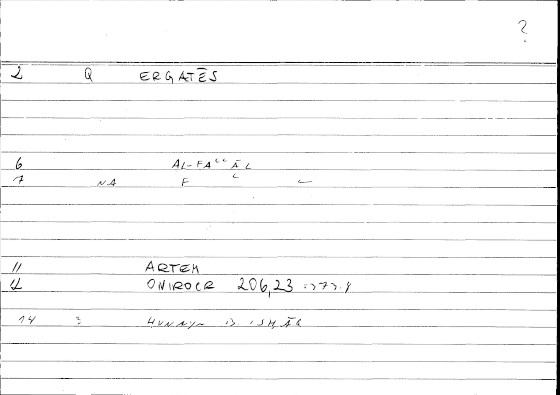 ?
2 Q ERGATĒS
6 AL-FAʿʿĀL
7 NA F ʿ
11 ARTEM
12 ONIROCR 206,23
14 3 HUNAYN B ISḤĀQ